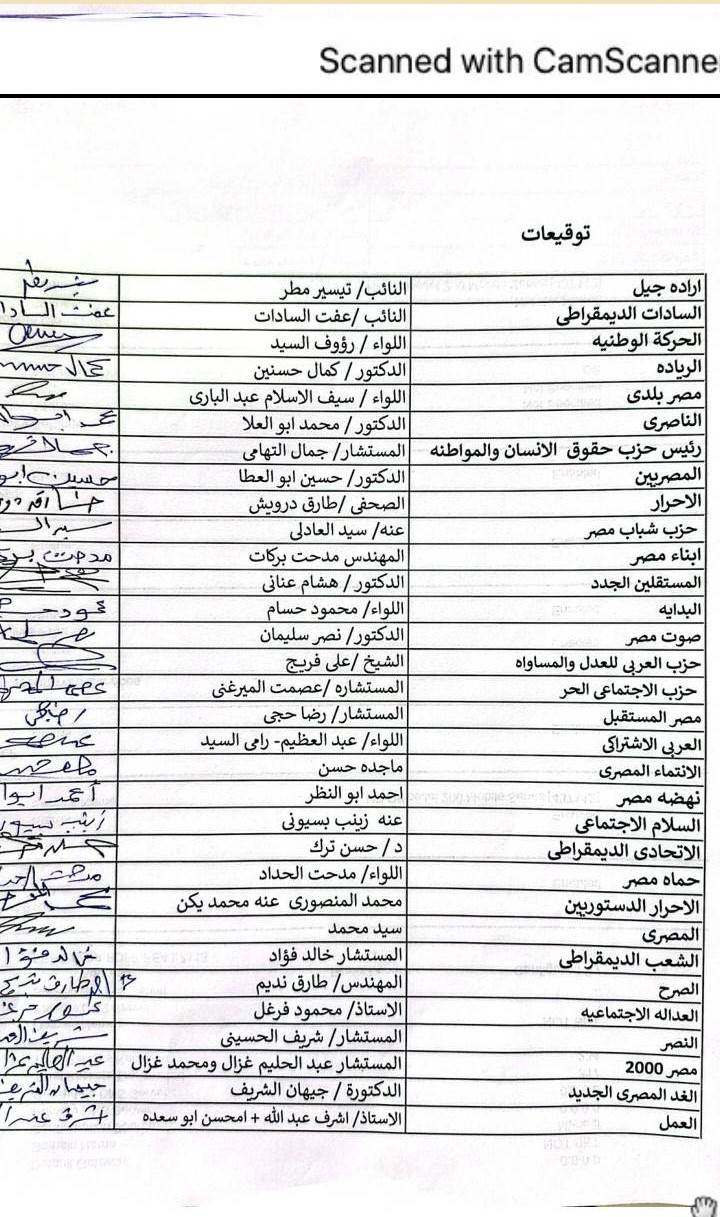 Scanned with CamScanne
توقيعات
اراده جيل النائب/ تيسير مطر
السادات الديمقراطى النائب /عفت السادات عفت السادا
الحركة الوطنيه اللواء / رؤوف السيد
الرياده الدكتور / كمال حسنين
مصر بلدى اللواء / سيف الاسلام عبد البارى
الناصرى الدكتور / محمد ابو العلا
رئيس حزب حقوق الانسان والمواطنه المستشار/ جمال التهامى
المصريين الدكتور/ حسين ابو العطا حسين ابو
الاحرار الصحفى /طارق درويش
حزب شباب مصر عنه/ سيد العادلى
ابناء مصر المهندس مدحت بركات مدحت بركا
المستقلين الجدد الدكتور / هشام عنانى
البدايه اللواء/ محمود حسام
صوت مصر الدكتور/ نصر سليمان
حزب العربى للعدل والمساواه الشيخ /على فريج
حزب الاجتماعى الحر المستشاره /عصمت الميرغنى
مصر المستقبل المستشار/ رضا حجى
العربى الاشتراكى اللواء/ عبد العظيم- رامى السيد
الانتماء المصرى ماجده حسن
نهضه مصر احمد ابو النظر أحمد ابوا
السلام الاجتماعى عنه زينب بسيونى زينب بسيو
الاتحادى الديمقراطى د/ حسن ترك
حماه مصر اللواء/ مدحت الحداد
الاحرار الدستوريين محمد المنصورى عنه محمد يكن
المصرى سيد محمد
الشعب الديمقراطى المستشار خالد فؤاد
الصرح المهندس/ طارق نديم
العداله الاجتماعيه الاستاذ/ محمود فرغل
النصر المستشار/ شريف الحسينى
مصر 2000 المستشار عبد الحليم غزال ومحمد غزال
الغد المصرى الجديد الدكتورة / جيهان الشريف
العمل الاستاذ/ اشرف عبد الله + امحسن ابو سعده